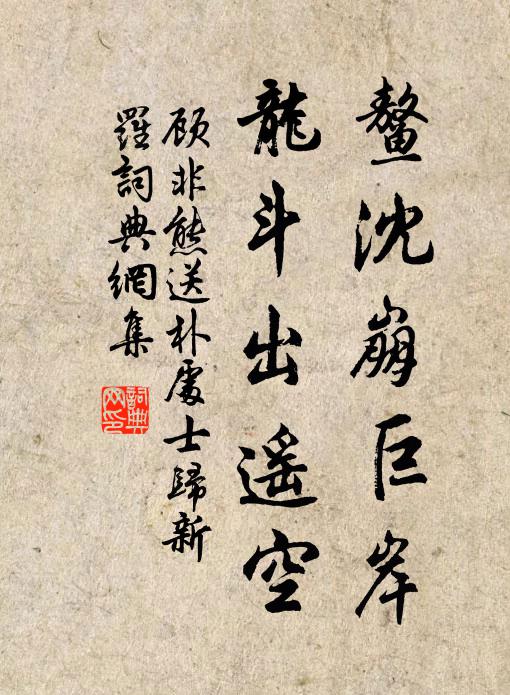 鳌沈崩巨岸
龍斗出遥空
顾非熊送朴處士歸新
羅詞典網集
詞典网印